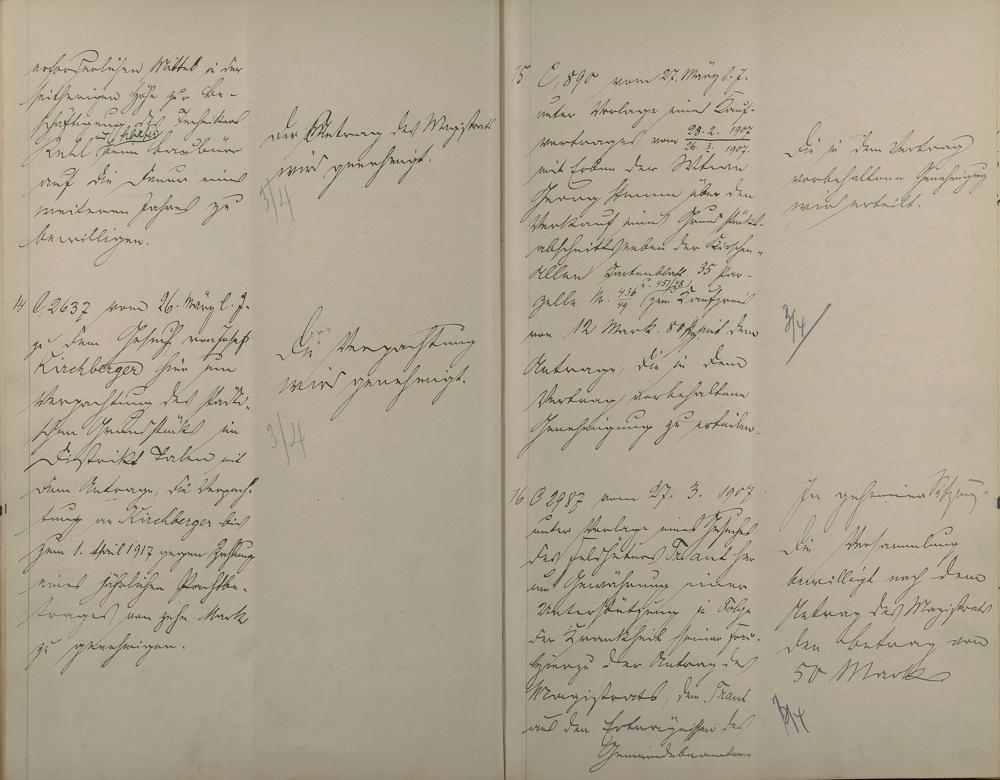 erforderlichen Mittel in der
seitherigen Höhe zur Be-
schäftigung des Technikers
beim Baubüro
auf die Dauer eines
weiteren Jahres zu
bewilligen.
Der Antrag des Magistrats
wird genehmigt.
3/4
14 C, 2637 vom 26. März l. J.
zu dem Gesuch von Josef
Kirchberger hier um
Verpachtung des städti-
schen Grundstücks im
Distrikt Talen mit
dem Antrage, die Verpach-
tung an Kirchberger bis
zum 1. April 1917 gegen Zahlung
eines jährlichen Pachtbe-
trages von zehn Mark
zu genehmigen.
Die Verpachtung
wird genehmigt.
3/4
15 C, 890 vom 27. März l. J.
unter Vorlage eines Kauf-
vertrages vom 28. 2. 1907
26. 3. 1907.
mit Erben der
Georg über den
Verkauf eines Grundstücks-
abschnitts neben der Kirschen-
Allee Kartenblatt 35 Par-
zelle N. 436/49 u. 451/48 zum Kaufpreis
von 12 Mark. 80 Pfg mit dem
Antrage, die in dem
Vertrag vorbehaltene
Genehmigung zu erteilen.
Die in dem Vertrag
vorbehaltene Genehmigung
wird erteilt.
3/4
16 C 2987 vom 27. 3. 1907
unter Vorlage eines Gesuches
des Feldhüters Traut hier
um Gewährung einer
Unterstützung in Folge
der Krankheit seiner Frau.
Hierzu der Antrag des
Magistrats, dem Traut
aus den Erträgnissen des
Gemeindebeamten
In geheimer Sitzung:
Die Versammlung
bewilligt nach dem
Antrag des Magistrats
den Betrag von
50 Mark
3/4